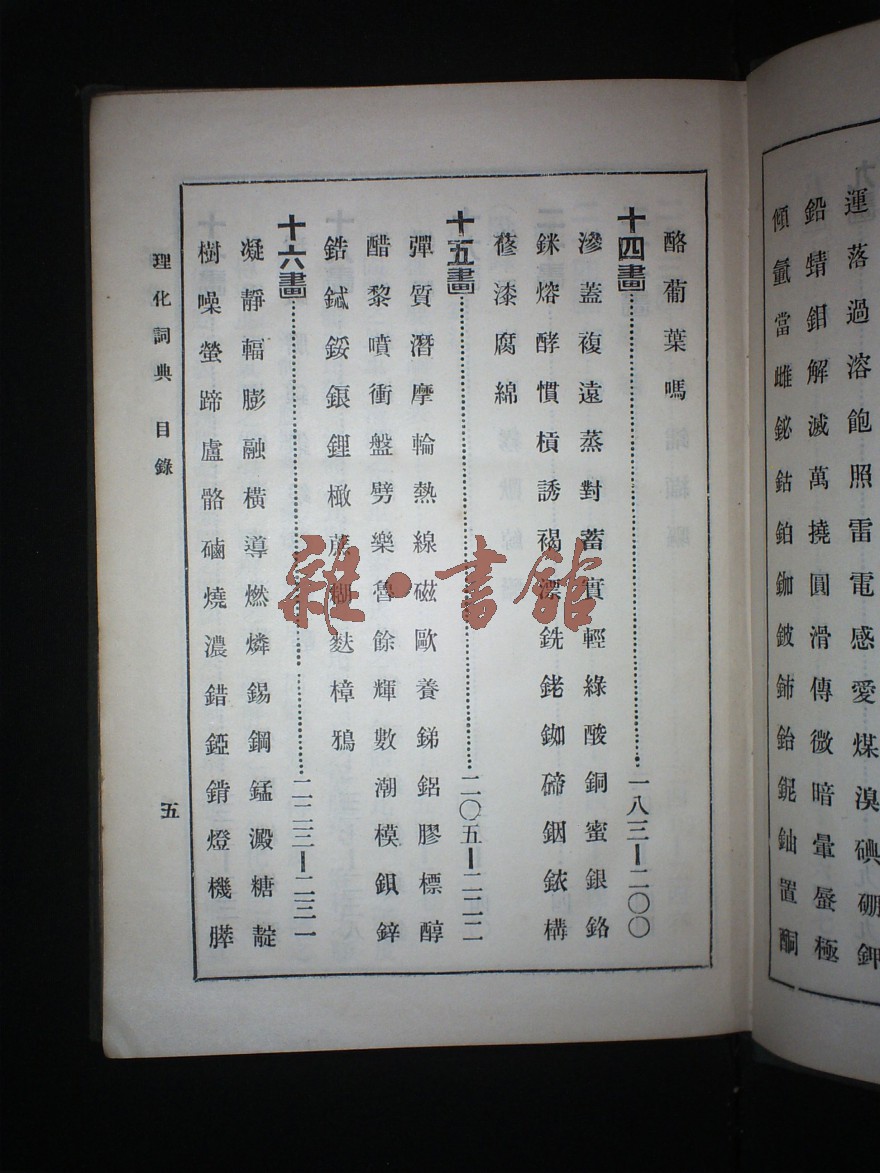 運落過溶飽照雷電感愛煤溴碘硼鉀
鉛蜻鉬解滅萬撓圓滑傳微暗暈蜃極
傾氭當雌鉍鈷鉑鉫鈹鈰鈶鈮鈾置酮
酪葡葉嗎
十四畫一八三—二〇〇
滲蓋複遠蒸對蓄實輕綠酸銅蜜銀鉻
銤熔酵慣槓誘褐漂銑銠銣碲銦銥構
蓚漆腐綿
十五畫二〇五—二二二
彈質潛摩輪熱線磁歐養銻鋁膠標醇
醋黎噴衝盤劈樂魯餘輝數潮模鋇鋅
鋯鋱鋖鋃鋰橄蔗糊麩樟鴉
十六畫二二三—二三一
凝靜輻膨融橫導燃燐錫鋼錳澱糖靛
樹噪螢蹄盧骼硇燒濃錯錏錆燈機膵
理化詞典 目錄
五
雜·書館